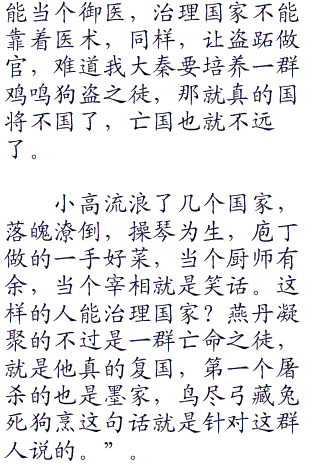 能当个御医，治理国家不能
靠着医术，同样，让盗跖做
官，难道我大秦要培养一群
鸡鸣狗盗之徒，那就真的国
将不国了，亡国也就不远
了。
小高流浪了几个国家，
落魄潦倒，操琴为生，庖丁
做的一手好菜，当个厨师有
余，当个宰相就是笑话。这
样的人能治理国家？燕丹凝
聚的不过是一群亡命之徒，
就是他真的复国，第一个屠
杀的也是墨家，鸟尽弓藏兔
死狗烹这句话就是针对这群
人说的。”。